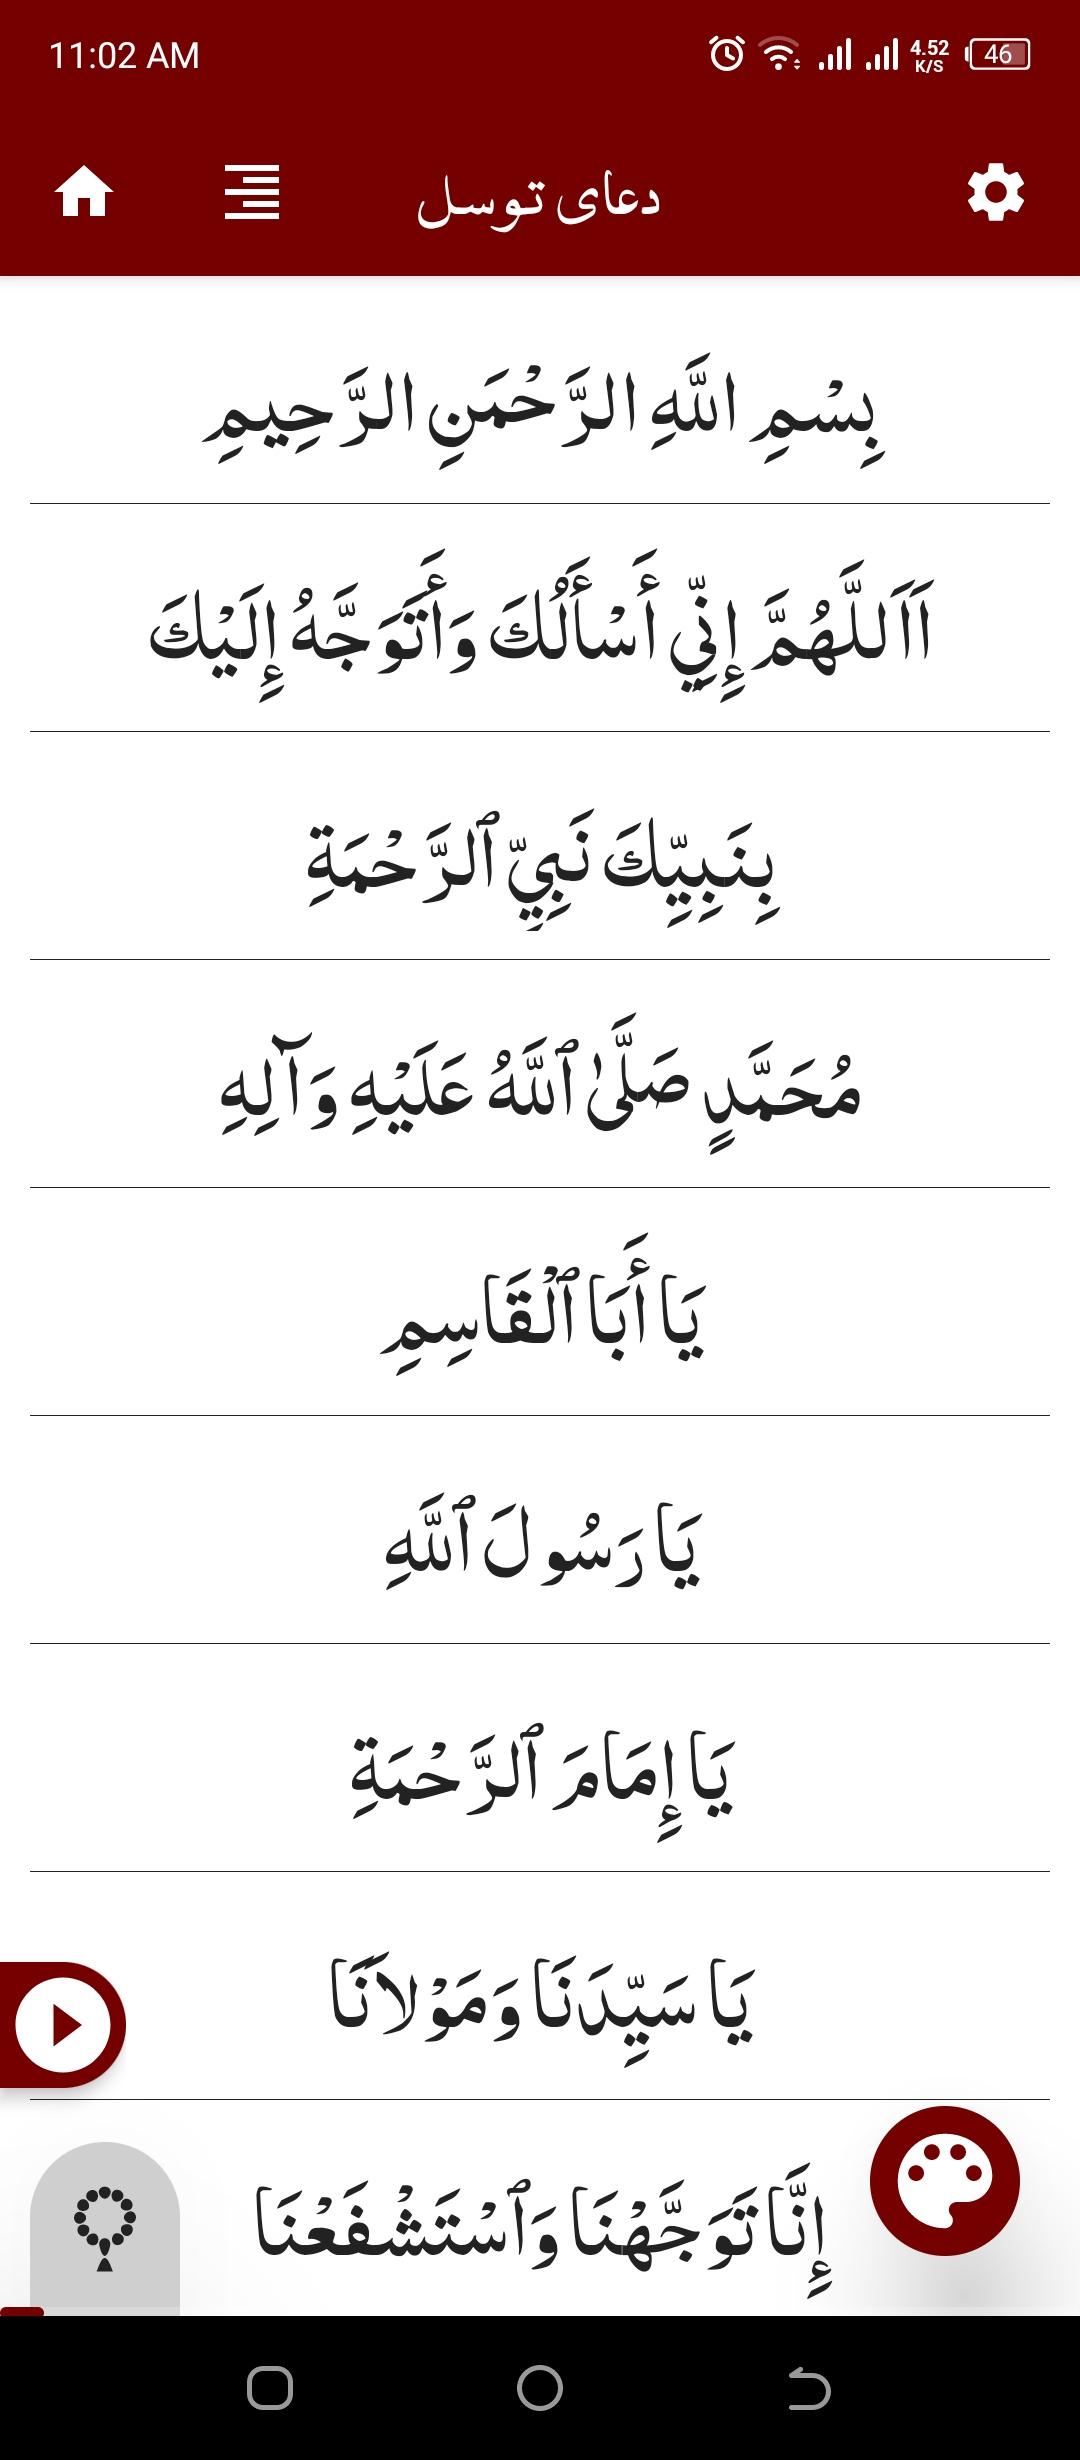 11:02 AM
4.52 K/S
46
دعای توسل
بِسْمِ اللَّهِ الرَّحْمَنِ الرَّحِيمِ
اَاَللَّهُمَّ إِنِّي أَسْأَلُكَ وَأَتَوَجَّهُ إِلَيْكَ
بِنَبِيِّكَ نَبِيِّ ٱلرَّحْمَةِ
مُحَمَّدٍ صَلَّىٰ ٱللَّهُ عَلَيْهِ وَآلِهِ
يَا أَبَا ٱلْقَاسِمِ
يَا رَسُولَ ٱللَّهِ
يَا إِمَامَ ٱلرَّحْمَةِ
يَا سَيِّدَنَا وَمَوْلاَنَا
إِنَّا تَوَجَّهْنَا وَٱسْتَشْفَعْنَا